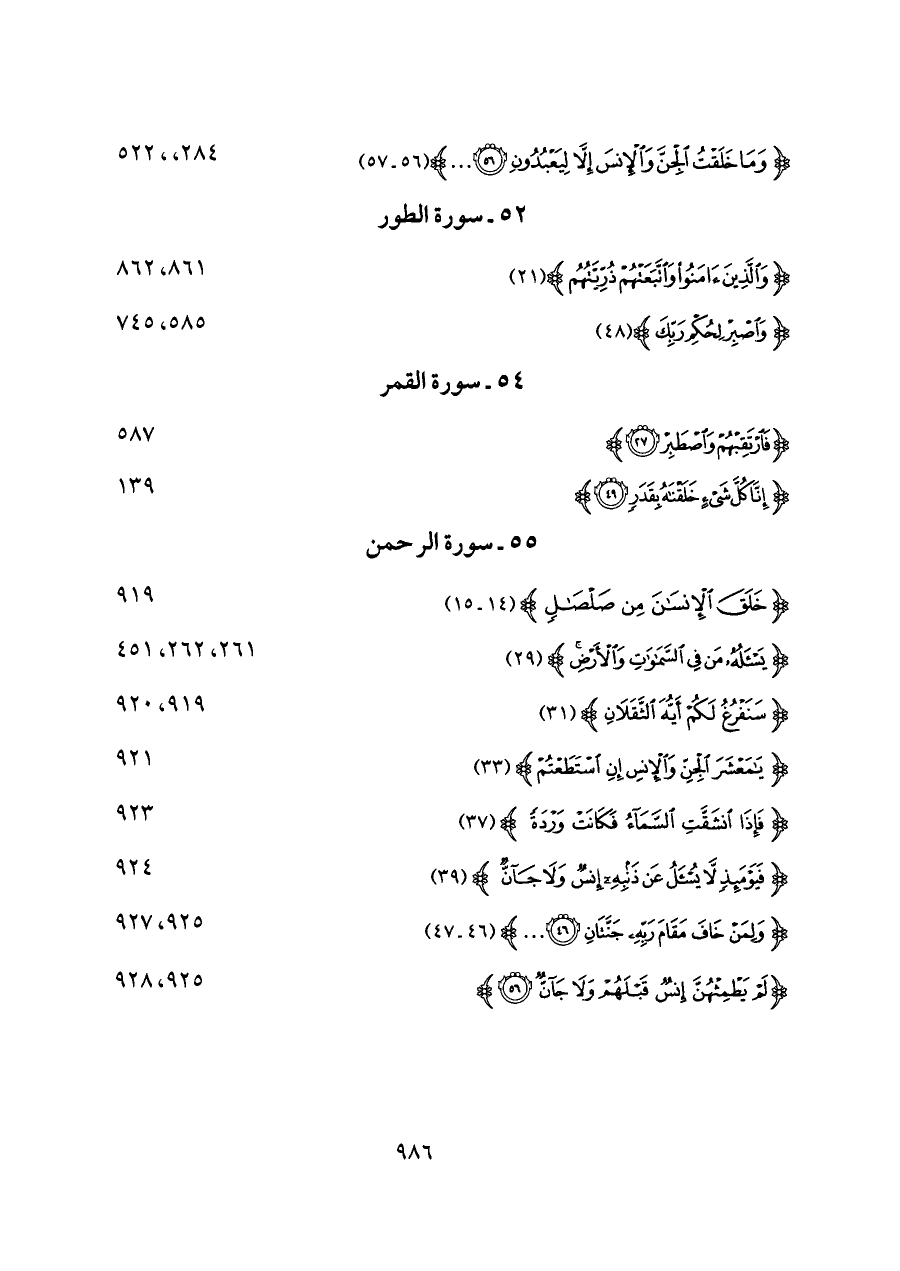 ﴿ وَمَا خَلَقْتُ ٱلْجِنَّ وَٱلْإِنسَ إِلَّا لِيَعْبُدُونِ ٥٦ ... ﴾ (٥٦ ـ ٥٧) ٢٨٤، ، ٥٢٢
٥٢ ـ سورة الطور
﴿ وَٱلَّذِينَ ءَامَنُوا۟ وَٱتَّبَعَتْهُمْ ذُرِّيَّتُهُم ﴾ (٢١) ٨٦١، ٨٦٢
﴿ وَٱصْبِرْ لِحُكْمِ رَبِّكَ ﴾ (٤٨) ٥٨٥، ٧٤٥
٥٤ ـ سورة القمر
﴿ فَٱرْتَقِبْهُمْ وَٱصْطَبِرْ ٢٧ ﴾ ٥٨٧
﴿ إِنَّا كُلَّ شَىْءٍ خَلَقْنَٰهُ بِقَدَرٍ ٤٩ ﴾ ١٣٩
٥٥ ـ سورة الرحمن
﴿ خَلَقَ ٱلْإِنسَٰنَ مِن صَلْصَٰلٍ ﴾ (١٤ ـ ١٥) ٩١٩
﴿ يَسْـَٔلُهُۥ مَن فِى ٱلسَّمَٰوَٰتِ وَٱلْأَرْضِ ۚ ﴾ (٢٩) ٢٦١، ٢٦٢، ٤٥١
﴿ سَنَفْرُغُ لَكُمْ أَيُّهَ ٱلثَّقَلَانِ ﴾ (٣١) ٩١٩، ٩٢٠
﴿ يَٰمَعْشَرَ ٱلْجِنِّ وَٱلْإِنسِ إِنِ ٱسْتَطَعْتُمْ ﴾ (٣٣) ٩٢١
﴿ فَإِذَا ٱنشَقَّتِ ٱلسَّمَآءُ فَكَانَتْ وَرْدَةً ﴾ (٣٧) ٩٢٣
﴿ فَيَوْمَئِذٍ لَّا يُسْـَٔلُ عَن ذَنۢبِهِۦٓ إِنسٌ وَلَا جَآنٌّ ﴾ (٣٩) ٩٢٤
﴿ وَلِمَنْ خَافَ مَقَامَ رَبِّهِۦ جَنَّتَانِ ٤٦ ... ﴾ (٤٦ ـ ٤٧) ٩٢٥، ٩٢٧
﴿ لَمْ يَطْمِثْهُنَّ إِنسٌ قَبْلَهُمْ وَلَا جَآنٌّ ٥٦ ﴾ ٩٢٥، ٩٢٨
٩٨٦